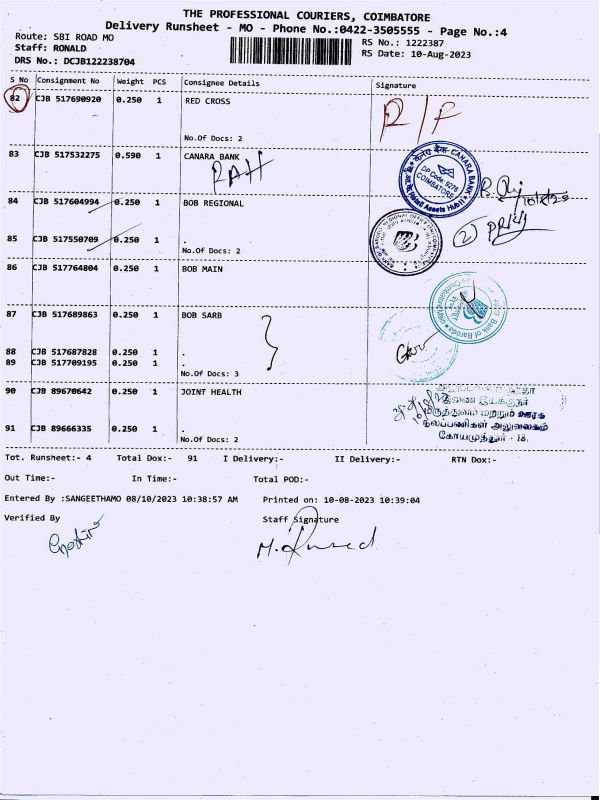 THE PROFESSIONAL COURIERS, COIMBATORE
Delivery Runsheet - MO - Phone No.:0422-3505555 - Page No.:4
Route: SBI ROAD MO
RS No.: 1222387
Staff: RONALD
RS Date: 10-Aug-2023
DRS No.: DCJB122238704
S No Consignment No Weight PCS Consignee Details Signature
82 CJB 517690920 0.250 1 RED CROSS
R/F
No.Of Docs: 2
83 CJB 517532275 0.590 1 CANARA BANK
RAH
CANARA BANK
DP Code: 9276
COIMBATORE
Retail Assets Hub
84 CJB 517604994 0.250 1 BOB REGIONAL
85 CJB 517550709 0.250 1 .
No.Of Docs: 2
86 CJB 517764804 0.250 1 BOB MAIN
87 CJB 517689863 0.250 1 BOB SARB
Bank of Baroda
88 CJB 517687828 0.250 1 .
89 CJB 517709195 0.250 1 .
No.Of Docs: 3
90 CJB 89670642 0.250 1 JOINT HEALTH
இணை இயக்குநர்
மருத்துவம் மற்றும் ஊரக
நலப்பணிகள் அலுவலகம்
கோயமுத்தூர் - 18.
91 CJB 89666335 0.250 1 .
No.Of Docs: 2
Tot. Runsheet:- 4 Total Dox:- 91 I Delivery:- II Delivery:- RTN Dox:-
Out Time:- In Time:- Total POD:-
Entered By :SANGEETHAMO 08/10/2023 10:38:57 AM Printed on: 10-08-2023 10:39:04
Verified By Staff Signature